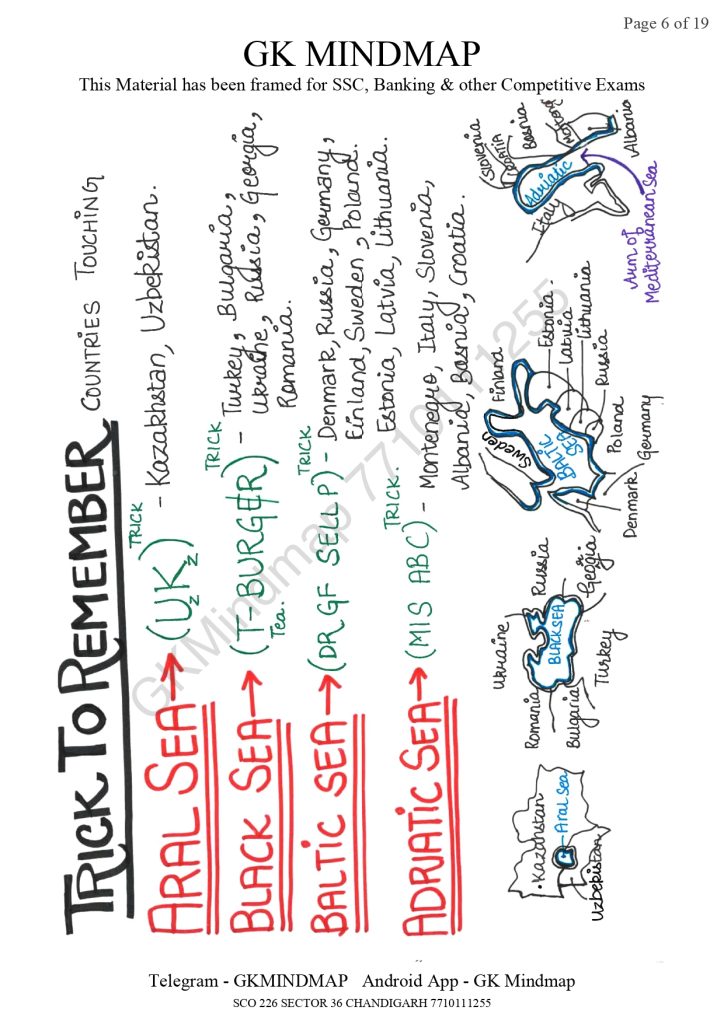 Page 6 of 19
GK MINDMAP
This Material has been framed for SSC, Banking & other Competitive Exams
TRICK TO REMEMBER COUNTRIES TOUCHING
ARAL SEA → (UzKz) TRICK - Kazakhstan, Uzbekistan.
BLACK SEA → (T-BURGER) TRICK - Turkey, Bulgaria,
Tea.
Ukraine, Russia, Georgia,
Romania.
BALTIC SEA → (DR GF SELL P) TRICK - Denmark, Russia, Germany,
Finland, Sweden, Poland,
Estonia, Latvia, Lithuania.
ADRIATIC SEA → (MIS ABC) TRICK. - Montenegro, Italy, Slovenia,
Albania, Bosnia, Croatia.
Kazahstan
Aral Sea
Uzbekistan
Ukraine
Russia
Romania
BLACK SEA
Georgia
Bulgaria
Turkey
Finland
Sweden
Estonia
Latvia
Lithuania
BALTIC
SEA
Russia
Poland
Denmark
Germany
Slovenia
Croatia
Bosnia
Albania
Adriatic
Italy
Arm of
Mediterranean Sea
GKMindmap 7710111255
Telegram - GKMINDMAP Android App - GK Mindmap
SCO 226 SECTOR 36 CHANDIGARH 7710111255